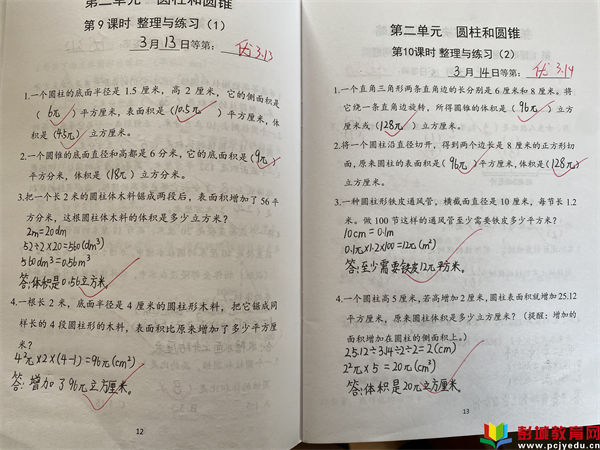 第二单元 圆柱和圆锥
第9课时 整理与练习（1）
3月13日等第： 优 3.13
1.一个圆柱的底面半径是 1.5 厘米，高 2 厘米，它的侧面积是
（ 6π ）平方厘米，表面积是（ 10.5π ）平方厘米，体
积是（ 4.5π ）立方厘米。
2.一个圆锥的底面直径和高都是 6 分米，它的底面积是（ 9π ）
平方分米，体积是（ 18π ）立方分米。
3.把一个长 2 米的圆柱体木料锯成两段后，表面积增加了 56 平
方分米，这根圆柱体木料的体积是多少立方米？
2m=20dm
52÷2×20=560(dm³)
560dm³=0.56m³
答:体积是0.56立方米。
4.一根长 2 米，底面半径是 4 厘米的圆柱形木料，把它锯成同
样长的 4 段圆柱形的木料，表面积比原来增加了多少平方厘
米？
4²π×2×(4-1)=96π(cm²)
答:增加了96π立方厘米。
12
第二单元 圆柱和圆锥
第10课时 整理与练习（2）
3月14日等第： 优 3.14
1.一个直角三角形两条直角边的长分别是 6 厘米和 8 厘米。将
它绕一条直角边旋转，所得圆锥的体积是（ 96π ）立方
厘米或（ 128π ）立方厘米。
2.将一个圆柱沿直径切开，得到两个边长是 8 厘米的正方形切
面，原来圆柱的表面积是（ 96π ）平方厘米，体积是（ 128π ）
立方厘米。
3.一种圆柱形铁皮通风管，横截面直径是 10 厘米，每节长 1.2
米。做 100 节这样的通风管至少需要铁皮多少平方米？
10cm=0.1m
0.1π×1.2×100=12π(m²)
答:至少需要铁皮12π平方米。
4.一个圆柱高 5 厘米，若高增加 2 厘米，圆柱表面积就增加 25.12
平方厘米，原来圆柱体积是多少立方厘米？（提醒：增加的
面积增加在圆柱的侧面积上。）
25.12÷3.14÷2÷2=2(cm)
2²π×5=20π(cm³)
答:体积是20π立方厘米。
13
彭城教育网
www.pcjyedu.cn